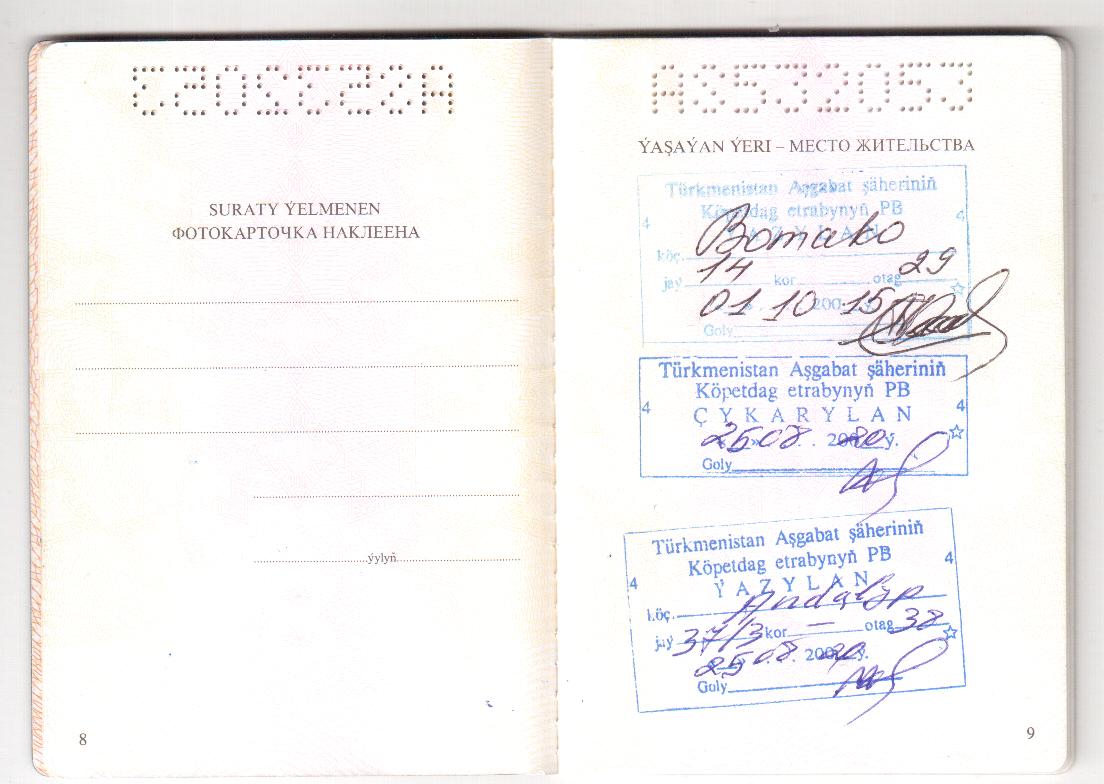 SURATY ÝELMENEN
ФОТОКАРТОЧКА НАКЛЕЕНА
ýylyň
8
AS532053
ÝAŞAÝAN ÝERI – МЕСТО ЖИТЕЛЬСТВА
Türkmenistan Aşgabat şäheriniň
Köpetdag etrabynyň PB
4 ÝAZYLAN 4
köç. Bomako
jaý 14 kor otag 29
01 10 200 15
Goly
Türkmenistan Aşgabat şäheriniň
Köpetdag etrabynyň PB
4 ÇYKARYLAN 4
25 08 20 ý.
Goly
Türkmenistan Aşgabat şäheriniň
Köpetdag etrabynyň PB
4 ÝAZYLAN 4
köç. Andalyp
jaý 37/3 kor – otag 38
25 08 200 20 ý.
Goly
9